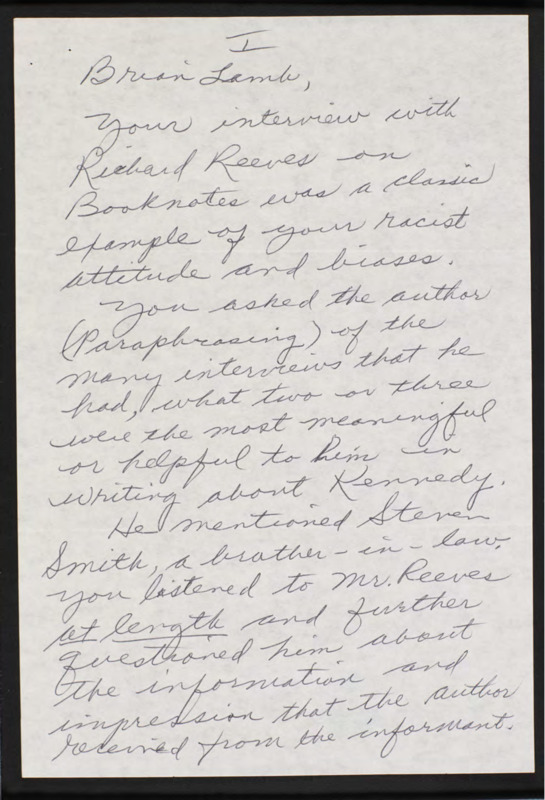 I
Brian Lamb,
Your interview with
Richard Reeves on
Booknotes was a classic
example of your racist
attitude and biases.
You asked the author
(Paraphrasing) of the
many interviews that he
had, what two or three
were the most meaningful
or helpful to him in
writing about Kennedy.
He mentioned Steven
Smith, a brother-in-law.
You listened to Mr. Reeves
at length and further
questioned him about
the information and
impression that the author
received from the informant.